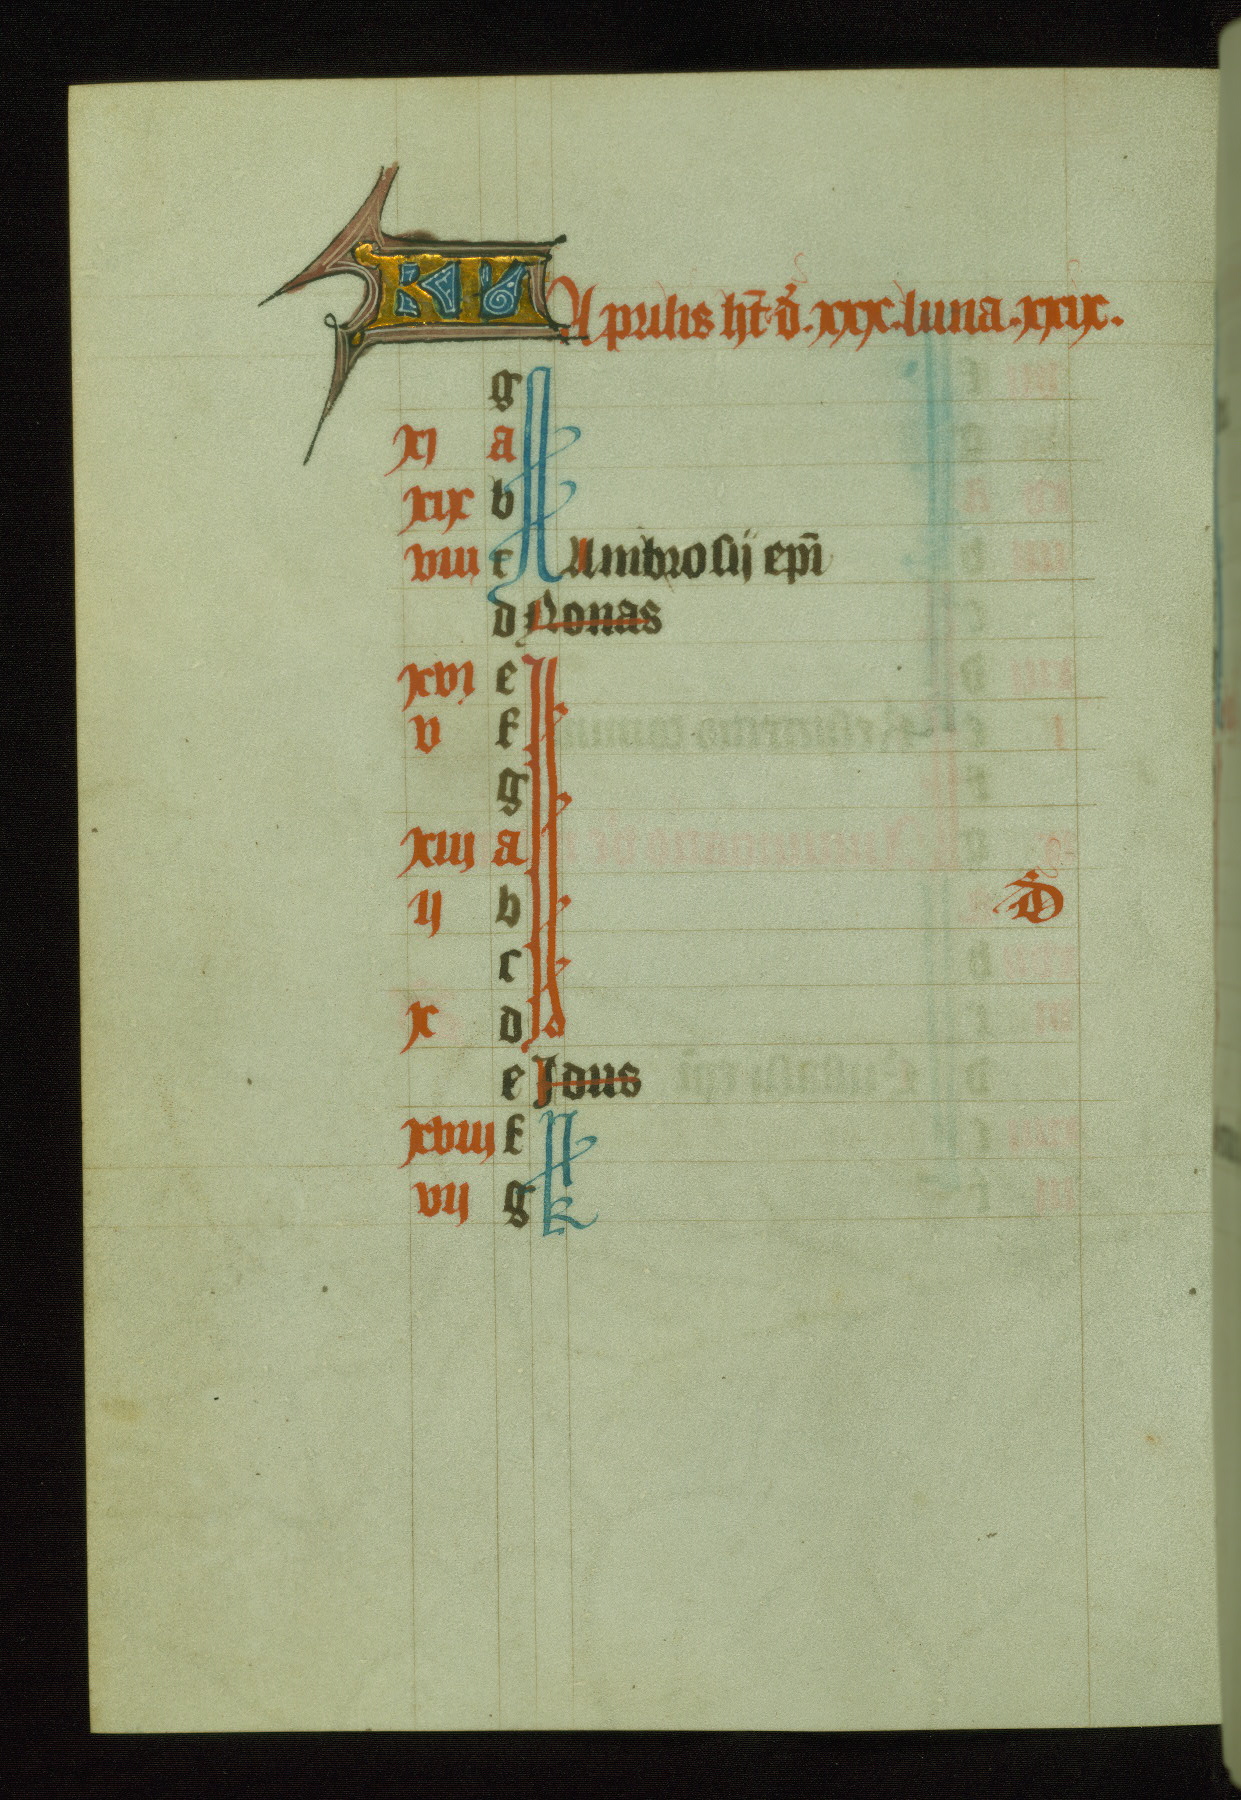 KL Aprilis ht̄ d̄. xxx. luna. xxix.
g
xi a
xix b
viii c Ambrosij ep̄i
d Nonas
xvi e
v f
g
xiii a
ij b D
c
x d
e Idus
xviii f
vij g